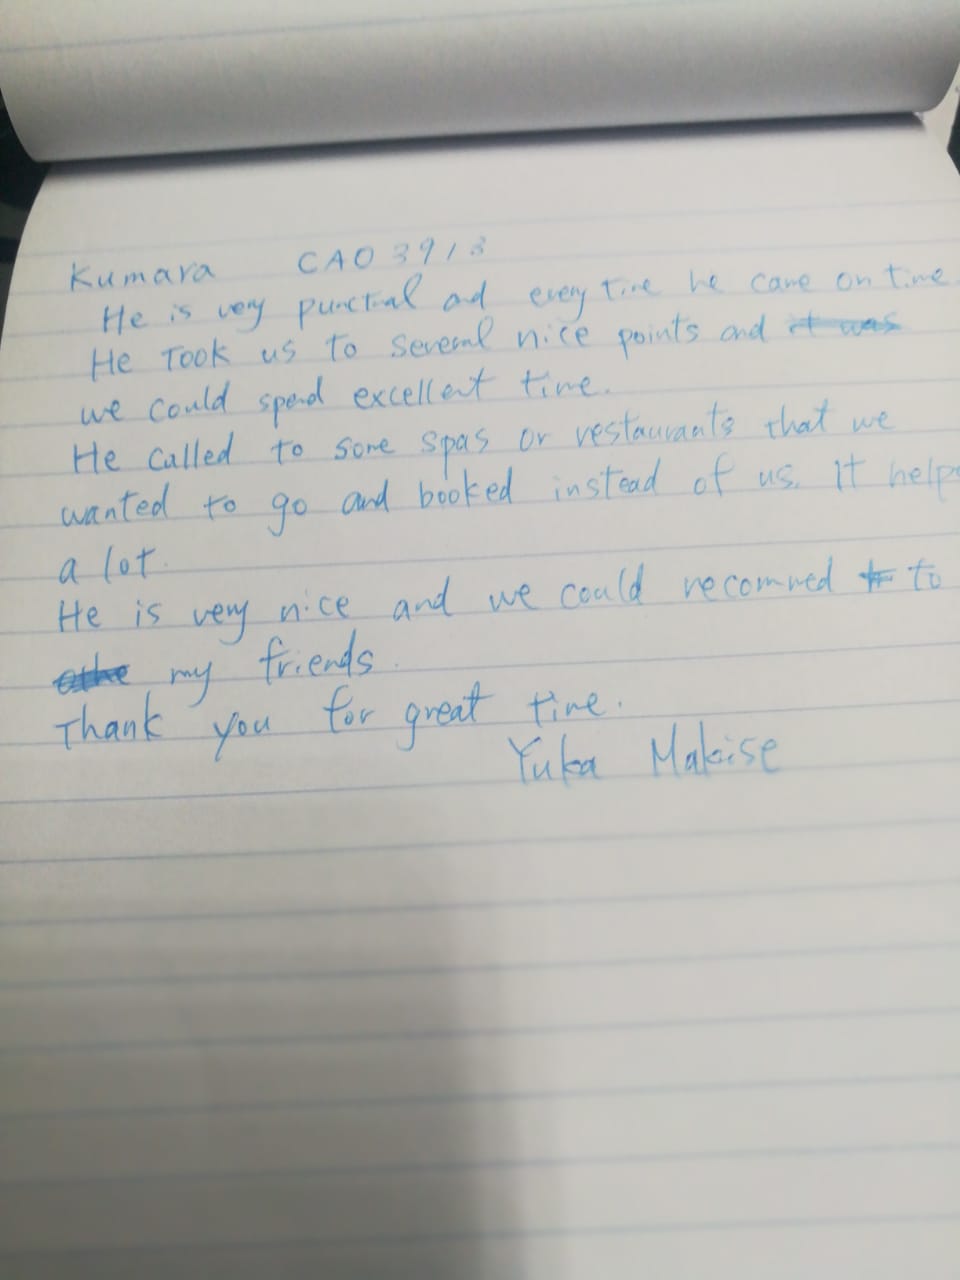 Kumara CAO 3913
He is very punctual and every time he came on time
He Took us to several nice points and it was
we could spend excellent time.
He called to some spas or restaurants that we
wanted to go and booked instead of us. It help
a lot.
He is very nice and we could recommed to
my friends.
Thank you for great time.
Yuka Makise